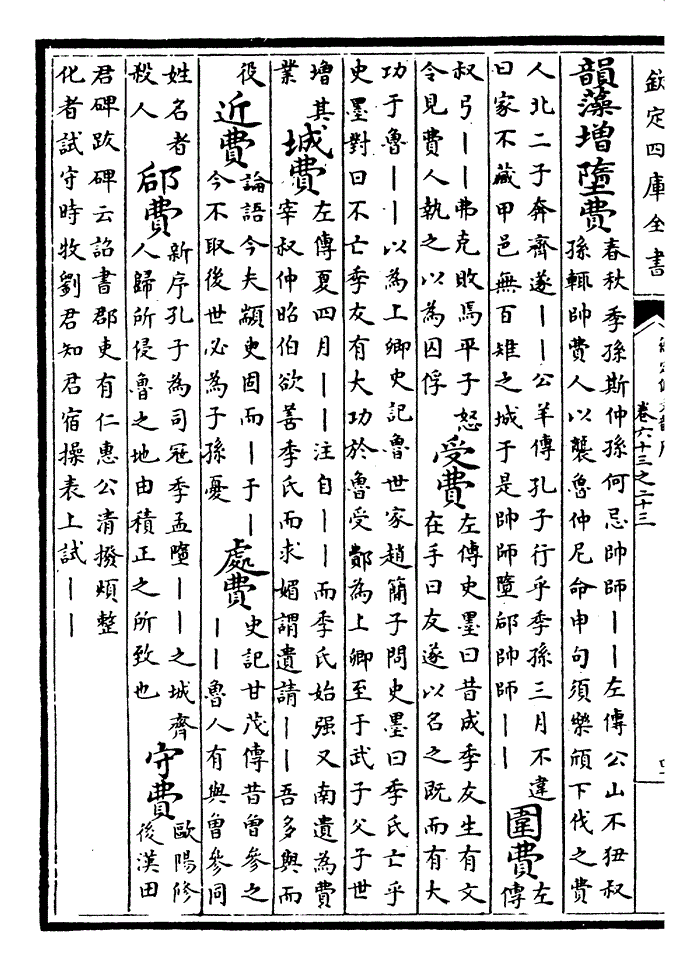 欽定四庫全書
卷六十三之二十三
韻藻增墮費
春秋季孫斯仲孫何忌帥師丨丨左傳公山不狃叔
孫輒帥費人以襲魯仲尼命申句須樂頎下伐之費
人北二子奔齊遂丨丨公羊傳孔子行乎季孫三月不違
曰家不藏甲邑無百雉之城于是帥師墮郈帥師丨丨
圍費
左
傳
叔弓丨丨弗克敗焉平子怒
令見費人執之以為囚俘
受費
左傳史墨曰昔成季友生有文
在手曰友遂以名之既而有大
功于魯丨丨以為上卿史記魯世家趙簡子問史墨曰季氏亡乎
史墨對曰不亡季友有大功於魯受鄪為上卿至于武子父子世
增其
業
城費
左傳夏四月丨丨注自丨丨而季氏始强又南遺為費
宰叔仲昭伯欲善季氏而求媚謂遺請丨丨吾多與而
役
近費
論語今夫顓臾固而丨于丨
今不取後世必為子孫憂
處費
史記甘茂傳昔曾參之
丨丨魯人有與曾參同
姓名者
殺人
郈費
新序孔子為司冦季孟墮丨丨之城齊
人歸所侵魯之地由積正之所致也
守費
歐陽修
後漢田
君碑跋碑云詔書郡吏有仁惠公清撥煩整
化者試守時牧劉君知君宿操表上試丨丨